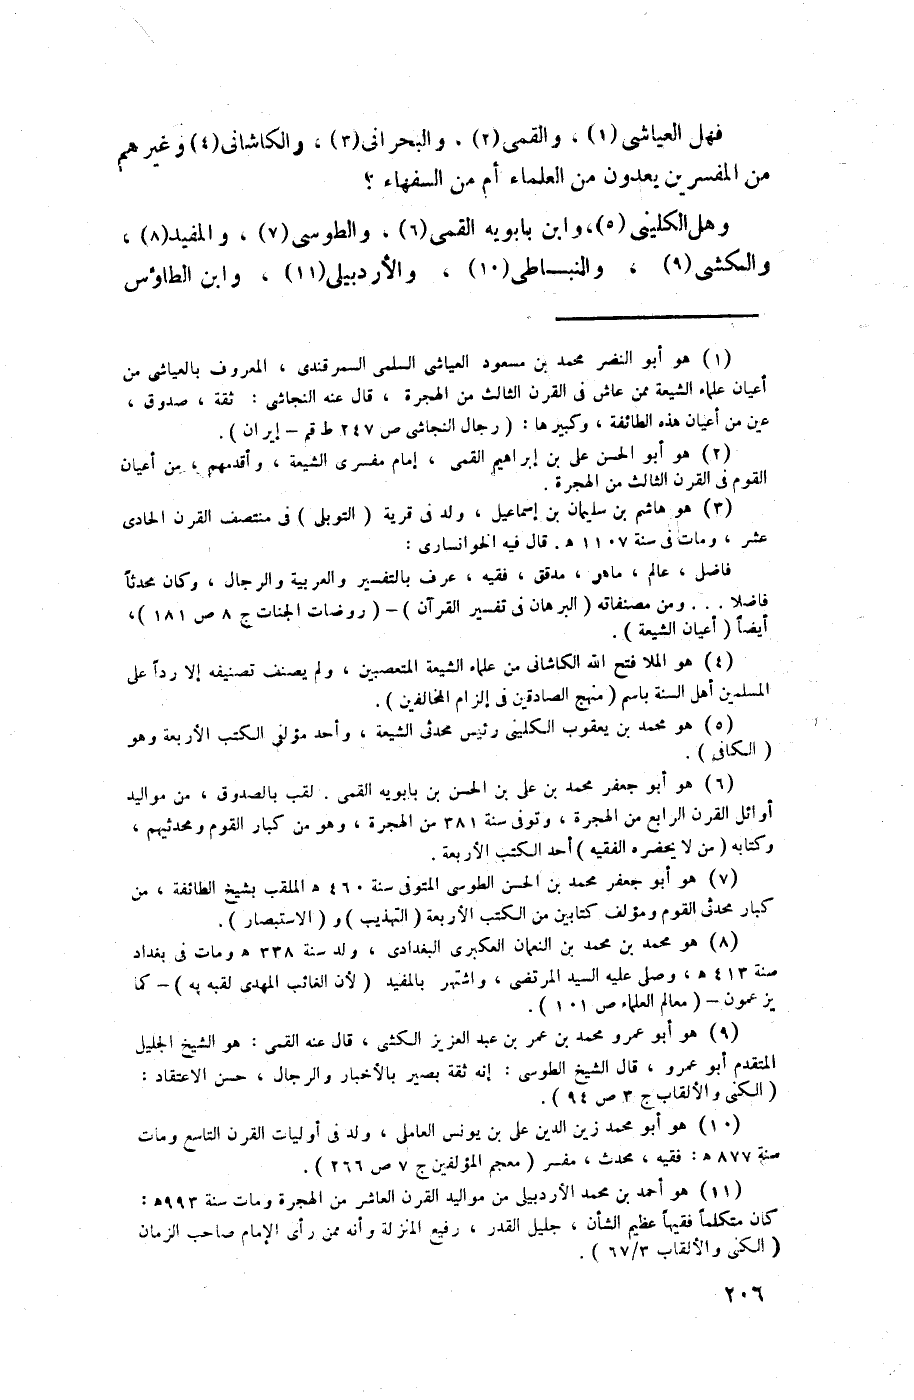 فهل العياشى (١) ، والقمى (٢) . والبحرانى (٣) ، والكاشانى (٤) وغيرهم
من المفسرين يعدون من العلماء أم من السفهاء ؟
وهل الكلينى (٥)، وابن بابويه القمى (٦) . والطوسى (٧) ، والمفيد (٨) ،
والكشى (٩) ، والنباطى (١٠) ، والأردبيلى (١١) ، وابن الطاؤس
(١) هو أبو النضر محمد بن مسعود العياشى السلمى السمرقندى ، المعروف بالعياشى من
أعيان علماء الشيعة ممن عاش فى القرن الثالث من الهجرة ، قال عنه النجاشى : ثقة ، صدوق ،
عين من أعيان هذه الطائفة ، وكبيرها : ( رجال النجاشى ص ٢٤٧ ط قم – إيران ) .
(٢) هو أبو الحسن على بن إبراهيم القمى ، إمام مفسرى الشيعة ، وأقدمهم ، من أعيان
القوم فى القرن الثالث من الهجرة .
(٣) هو هاشم بن سليمان بن إسماعيل ، ولد فى قرية ( التوبلى ) فى منتصف القرن الحادى
عشر ، ومات فى سنة ١١٠٧ ه . قال فيه الخوانسارى :
فاضل ، عالم ، ماهر ، مدقق ، فقيه ، عرف بالتفسير والعربية والرجال ، وكان محدثاً
فاضلا . . . ومن مصنفاته ( البرهان فى تفسير القرآن ) – ( روضات الجنات ج ٨ ص ١٨١ )،
أيضاً ( أعيان الشيعة ) .
(٤) هو الملا فتح الله الكاشانى من علماء الشيعة المتعصبين ، ولم يصنف تصنيفه إلا رداً على
المسلمين أهل السنة باسم ( منهج الصادقين فى إلزام المخالفين ) .
(٥) هو محمد بن يعقوب الكلينى رئيس محدثى الشيعة ، وأحد مؤلفى الكتب الأربعة وهو
( الكافى ) .
(٦) هو أبو جعفر محمد بن على بن الحسن بن بابويه القمى . لقب بالصدوق ، من مواليد
أوائل القرن الرابع من الهجرة ، وتوفى سنة ٣٨١ من الهجرة ، وهو من كبار القوم ومحدثيهم ،
وكتابه ( من لا يحضره الفقيه ) أحد الكتب الأربعة .
(٧) هو أبو جعفر محمد بن الحسن الطوسى المتوفى سنة ٤٦٠ ه الملقب بشيخ الطائفة ، من
كبار محدثى القوم ومؤلف كتابين من الكتب الأربعة ( التهذيب ) و ( الاستبصار ) .
(٨) هو محمد بن محمد بن النعمان العكبرى البغدادى ، ولد سنة ٣٣٨ ه ومات فى بغداد
سنة ٤١٣ ه ، وصلى عليه السيد المرتضى ، واشتهر بالمفيد ( لأن الغائب المهدى لقبه به ) – كما
يزعمون – ( معالم العلماء ص ١٠١ ) .
(٩) هو أبو عمرو محمد بن عمر بن عبد العزيز الكشى ، قال عنه القمى : هو الشيخ الجليل
المتقدم أبو عمرو ، قال الشيخ الطوسى : إنه ثقة بصير بالأخبار والرجال ، حسن الاعتقاد :
( الكنى والألقاب ج ٣ ص ٩٤ ) .
(١٠) هو أبو محمد زين الدين على بن يونس العاملى ، ولد فى أوليات القرن التاسع ومات
سنة ٨٧٧ ه : فقيه ، محدث ، مفسر ( معجم المؤلفين ج ٧ ص ٢٦٦ ) .
(١١) هو أحمد بن محمد الأردبيلى من مواليد القرن العاشر من الهجرة ومات سنة ٩٩٣ه :
كان متكلماً فقيهاً عظيم الشأن ، جليل القدر ، رفيع المنزلة وأنه ممن رأى الإمام صاحب الزمان
( الكنى والألقاب ٦٧/٣ ) .
٢٠٦